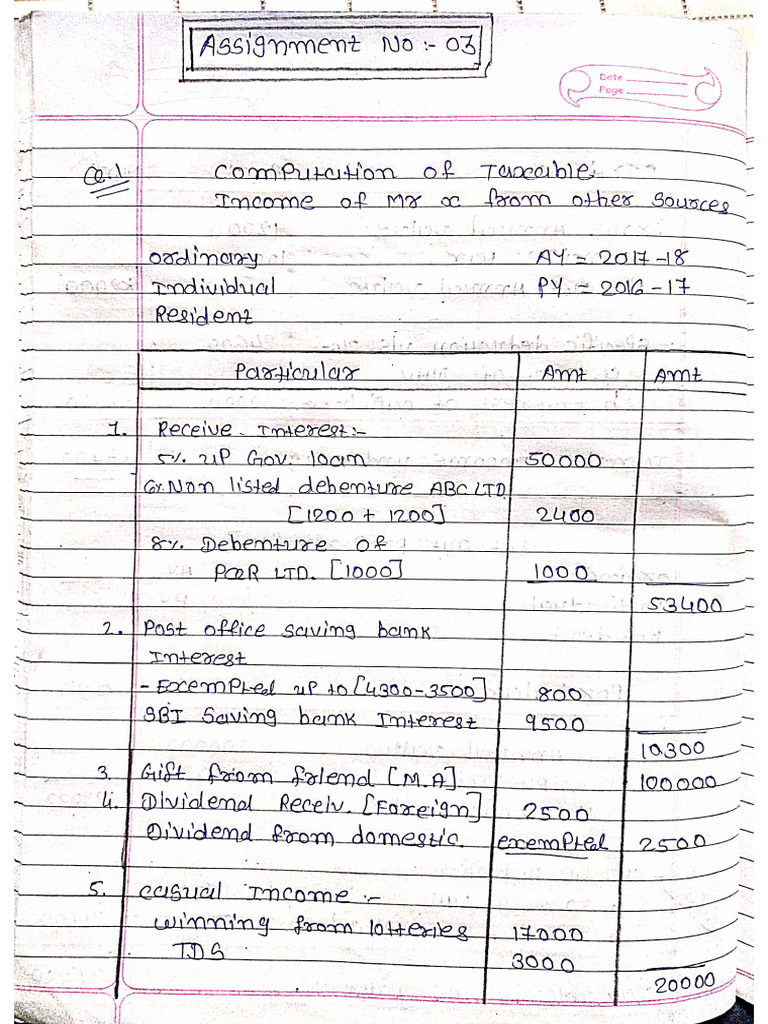 Assignment No :- 03
Date
Page
Q.1 Computation of Taxable
Income of Mr x from other Sources
Ordinary AY = 2017-18
Individual PY = 2016-17
Resident
Particular Amt Amt
1. Receive Interest:-
5% UP Gov. loan 50000
6% Non listed debenture ABC LTD.
[1200 + 1200] 2400
8% Debenture of
PQR LTD. [1000] 1000
53400
2. Post office saving bank
Interest
- Excempted up to [4300-3500] 800
SBI Saving bank Interest 9500
10300
3. Gift from friend [M.A] 100000
4. Dividend Receiv. [Foreign] 2500
Dividend from domestic. excempted 2500
5. Casual Income :-
Winning from lotteries 17000
TDS 3000
20000